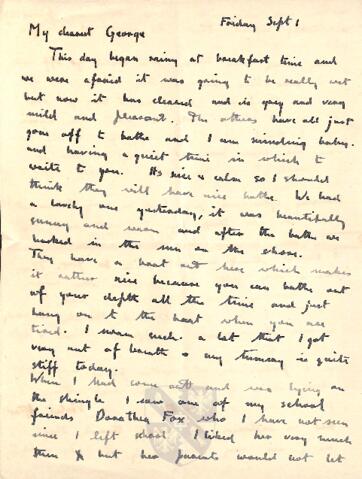 Friday Sept 1
My dearest George
This day began rainy at breakfast time and
we were afraid it was going to be really wet
but now it has cleared and is grey and very
mild and pleasant. The others have all just
gone off to bathe and I am minding baby
and having a quiet time in which to
write to you. Its nice & calm so I should
think they will have nice bathe. We had
a lovely one yesterday, it was beautifully
sunny and warm and after the bathe we
basked in the sun on the shore.
They have a boat out here which makes
it rather nice because you can bathe out
of your depth all the time and just
hang on to the boat when you are
tired. I swam such a lot that I got
very out of breath & my tummy is quite
stiff today.
When I had come out and was lying on
the shingle I saw one of my school
friends Dorothea Fox who I have not seen
since I left school. I liked her very much
then but her parents would not let